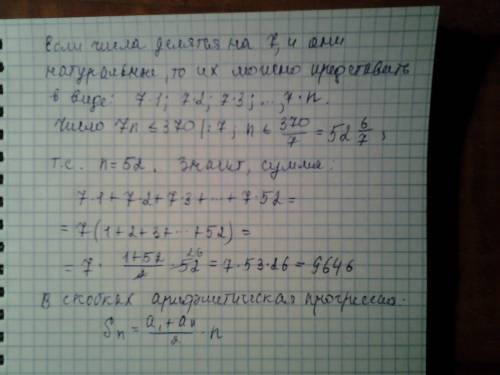 Если числа делятся на 7, и они
натуральные, то их можно представить
в виде: 7·1; 7·2; 7·3; ..., 7·n.
Число 7n ≤ 370 |:7; n ≤ 370/7 = 52 6/7;
т.е. n=52. Значит, сумма:
7·1+7·2+7·3+...+7·52=
=7(1+2+3+...+52)=
=7· (1+52)/2 · 52 26 = 7·53·26=9646
В скобках арифметическая прогрессия.
Sn = (a1+an)/2 · n